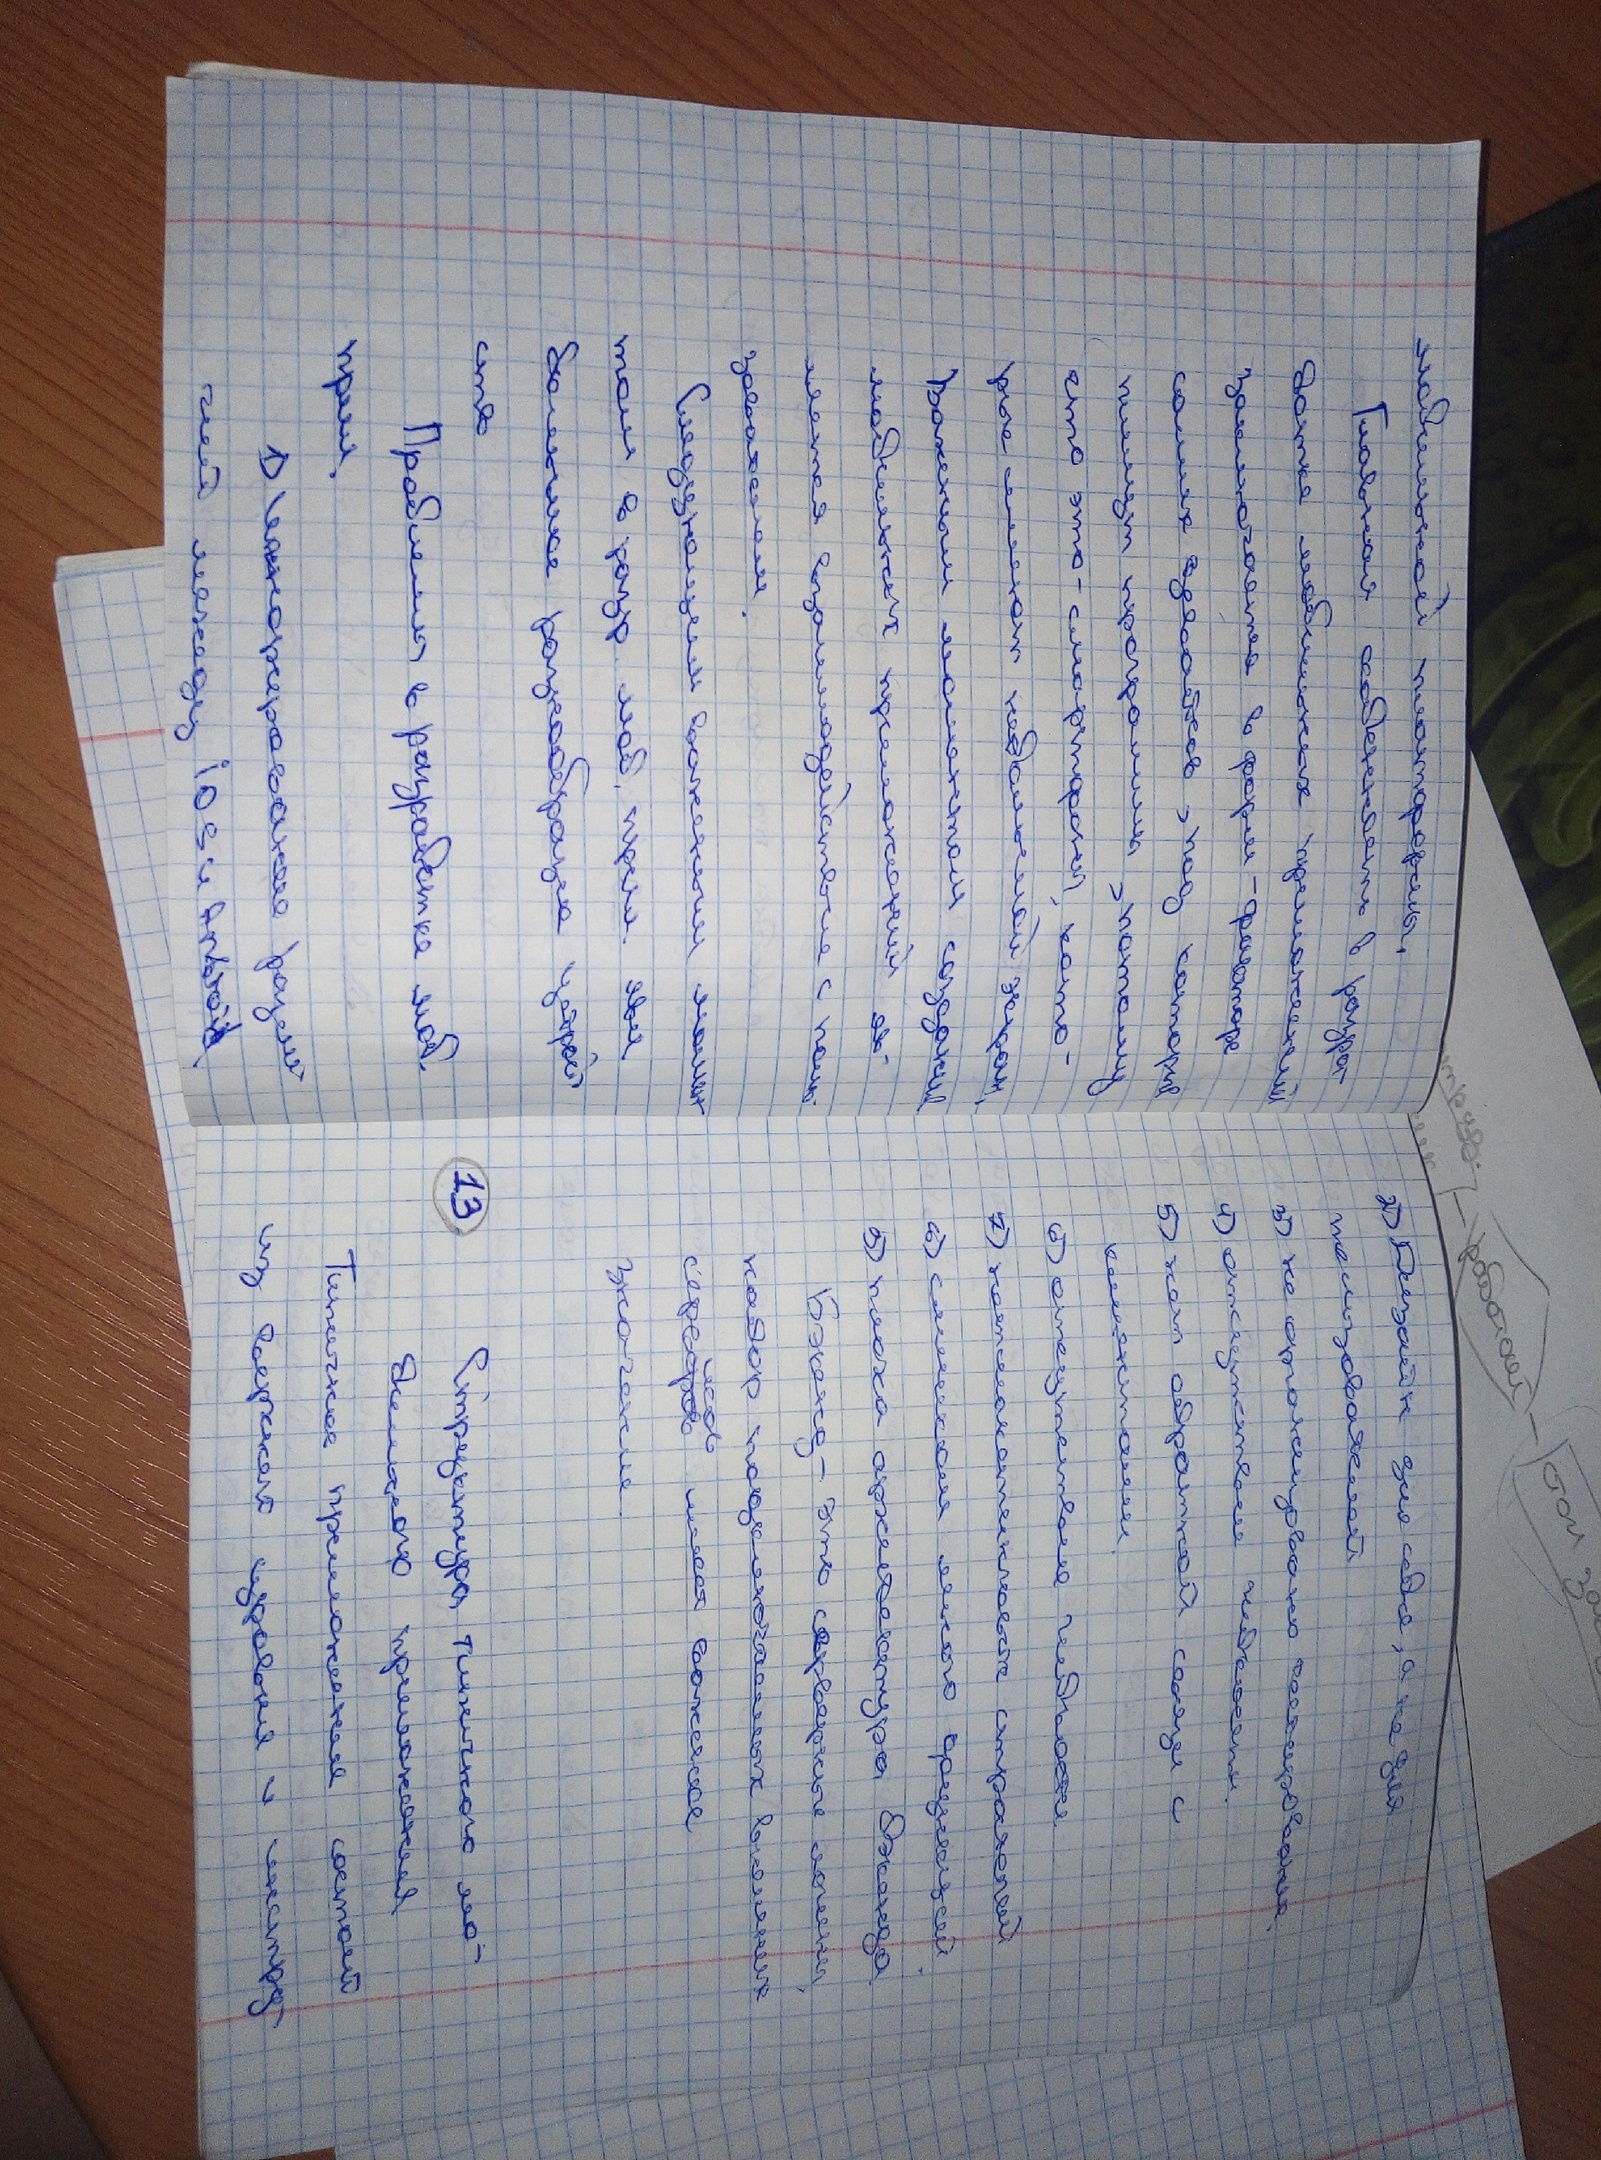 мобильной платформы.
Главная особенность в разра-
ботке мобильных приложений
заключается в форм-факторе
самих девайсов, под которые
пишут программы, потому
что это - смартфоны, кото-
рые имеют небольшой экран.
Важным моментом создания
мобильных приложений яв-
ляется взаимодействие с поль-
зователем.
Следующим важным момен
том в разр. моб. прил. явл.
большое разнообразие устрой
ств
Проблемы в разработке моб.
прил.
1) Игнорирование разли-
чий между iOS и Android
2) Дизайн для себя, а не для
пользователей
3) не организовано тестирование.
4) отсутствие гибкости.
5) нет обратной связи с
клиентами.
6) отсутствие гибкости.
7) нет стратегий
8) слишком много функций.
9) плоха архитектура бэкенда
Бэкенд - это серверные
набор подключаемых внешних
исов
серверов имеет важное
значение.
13 Структура типичного мо-
бильного приложения
Типичное приложение состоит
из верхнего уровня и инстру-
труз.
работает
стои